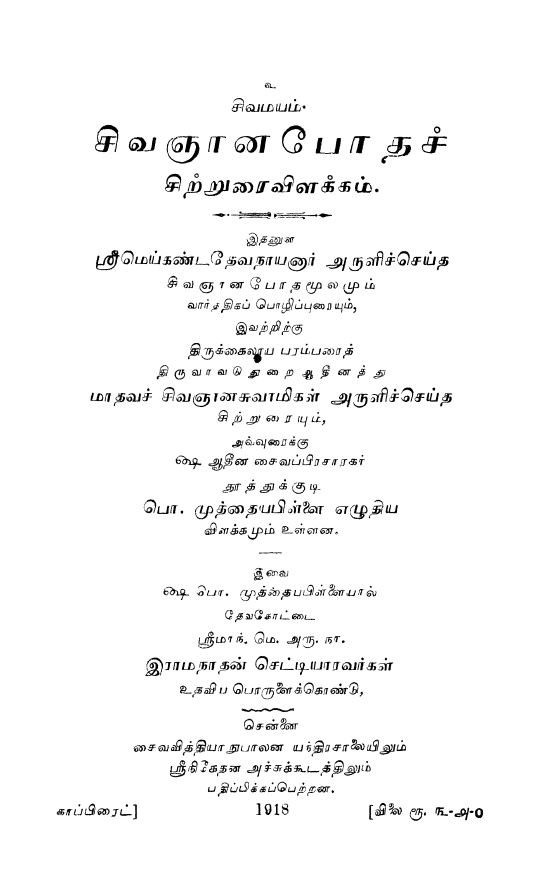 உ
சிவமயம்.
சிவஞானபோதச்
சிற்றுரைவிளக்கம்.
இதனுள்
ஸ்ரீமெய்கண்டதேவநாயனார் அருளிச்செய்த
சிவஞானபோதமூலமும்
வார்த்திகப் பொழிப்புரையும்,
இவற்றிற்கு
திருக்கைலாய பரம்பரைத்
திருவாவடுதுறை ஆதீனத்து
மாதவச் சிவஞானசுவாமிகள் அருளிச்செய்த
சிற்றுரையும்,
அவ்வுரைக்கு
௸ ஆதீன சைவப்பிரசாரகர்
தூத்துக்குடி
பொ. முத்தையபிள்ளை எழுதிய
விளக்கமும் உள்ளன.
இவை
௸ பொ. முத்தையபிள்ளையால்
தேவகோட்டை
ஸ்ரீமாந். மெ. அரு. நா.
இராமநாதன் செட்டியாரவர்கள்
உதவிய பொருளைக்கொண்டு,
சென்னை
சைவவித்தியாநுபாலன யந்திரசாலையிலும்
ஸ்ரீநிகேதன அச்சுக்கூடத்திலும்
பதிப்பிக்கப்பெற்றன.
காப்பிரைட்] 1918 [விலை ரூ. ௩-௮-0